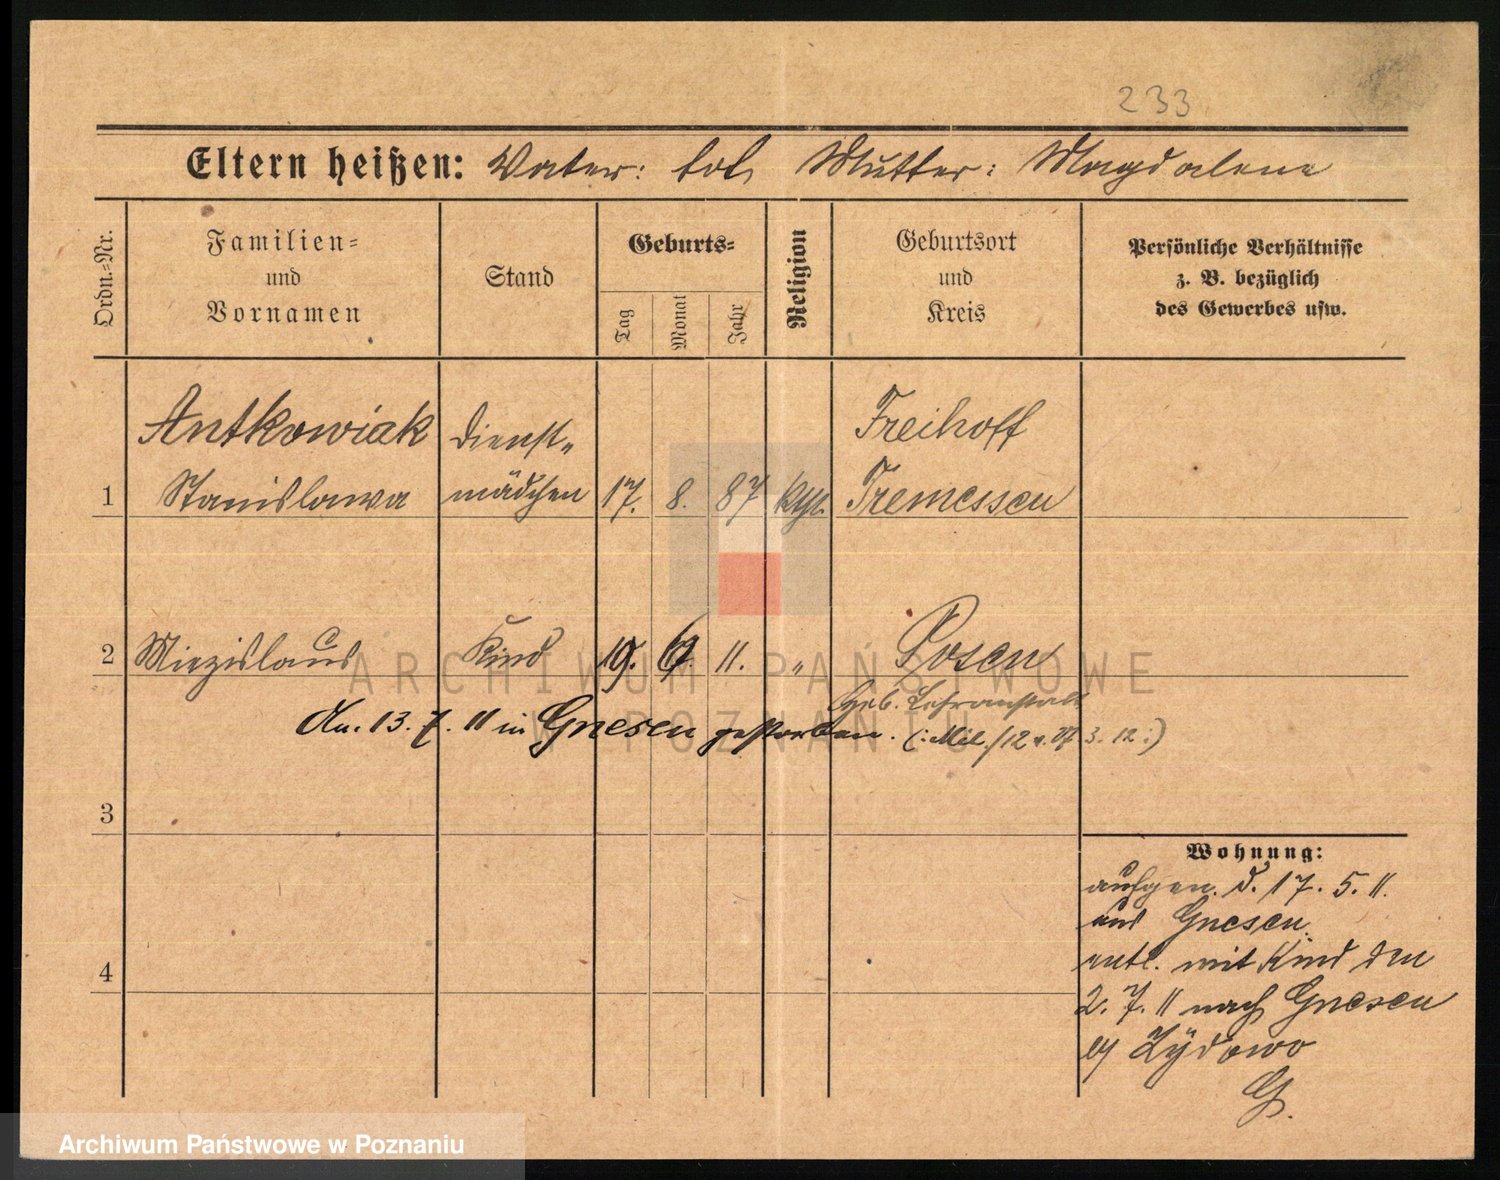 233
Eltern heißen: Vater: tot, Mutter: Magdalene
Ordn.=Nr.
Familien=
und
Vornamen
Stand
Geburts=
Tag
Monat
Jahr
Religion
Geburtsort
und
Kreis
Persönliche Verhältnisse
z. B. bezüglich
des Gewerbes usw.
Antkowiak Dienst= Freihoff
1 Stanislawa mädchen 17. 8. 87 Kth. Tremessen
2 Miezislaus Kind 19. 6. 11. " Posen
Geb. Lehranstalt
An. 13. 7. 11 in Gnesen gestorben. (: Mil. /12 v. 27 3. 12 :)
3
4
Wohnung:
aufgen. d. 17. 5. 11.
aus Gnesen.
entl. mit Kind den
2. 7. 11 nach Gnesen
Zydowo
G.
ARCHIWUM PAŃSTWOWE
W POZNANIU
Archiwum Państwowe w Poznaniu